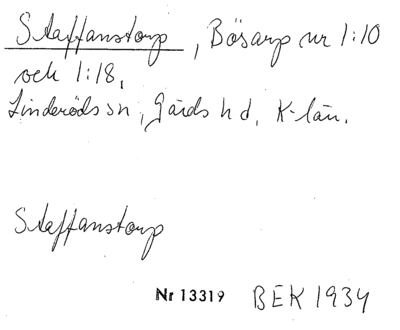 Staffanstorp, Bösarp nr 1:10
och 1:18,
Linderöds sn, Gärds hd, K-län.
Staffanstorp
Nr 13319 BEK 1934